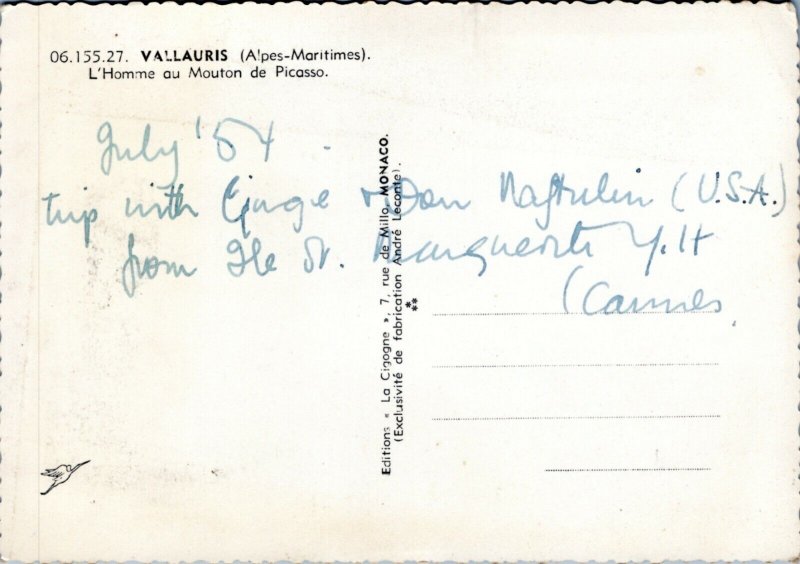 06.155.27. VALLAURIS (Alpes-Maritimes).
L'Homme au Mouton de Picasso.
July '54
trip with & Don (U.S.A.)
from Ile St. Marguerite Y.H
(Cannes.
Editions « La Cigogne », 7, rue de Millo, MONACO.
(Exclusivité de fabrication André Leconte).